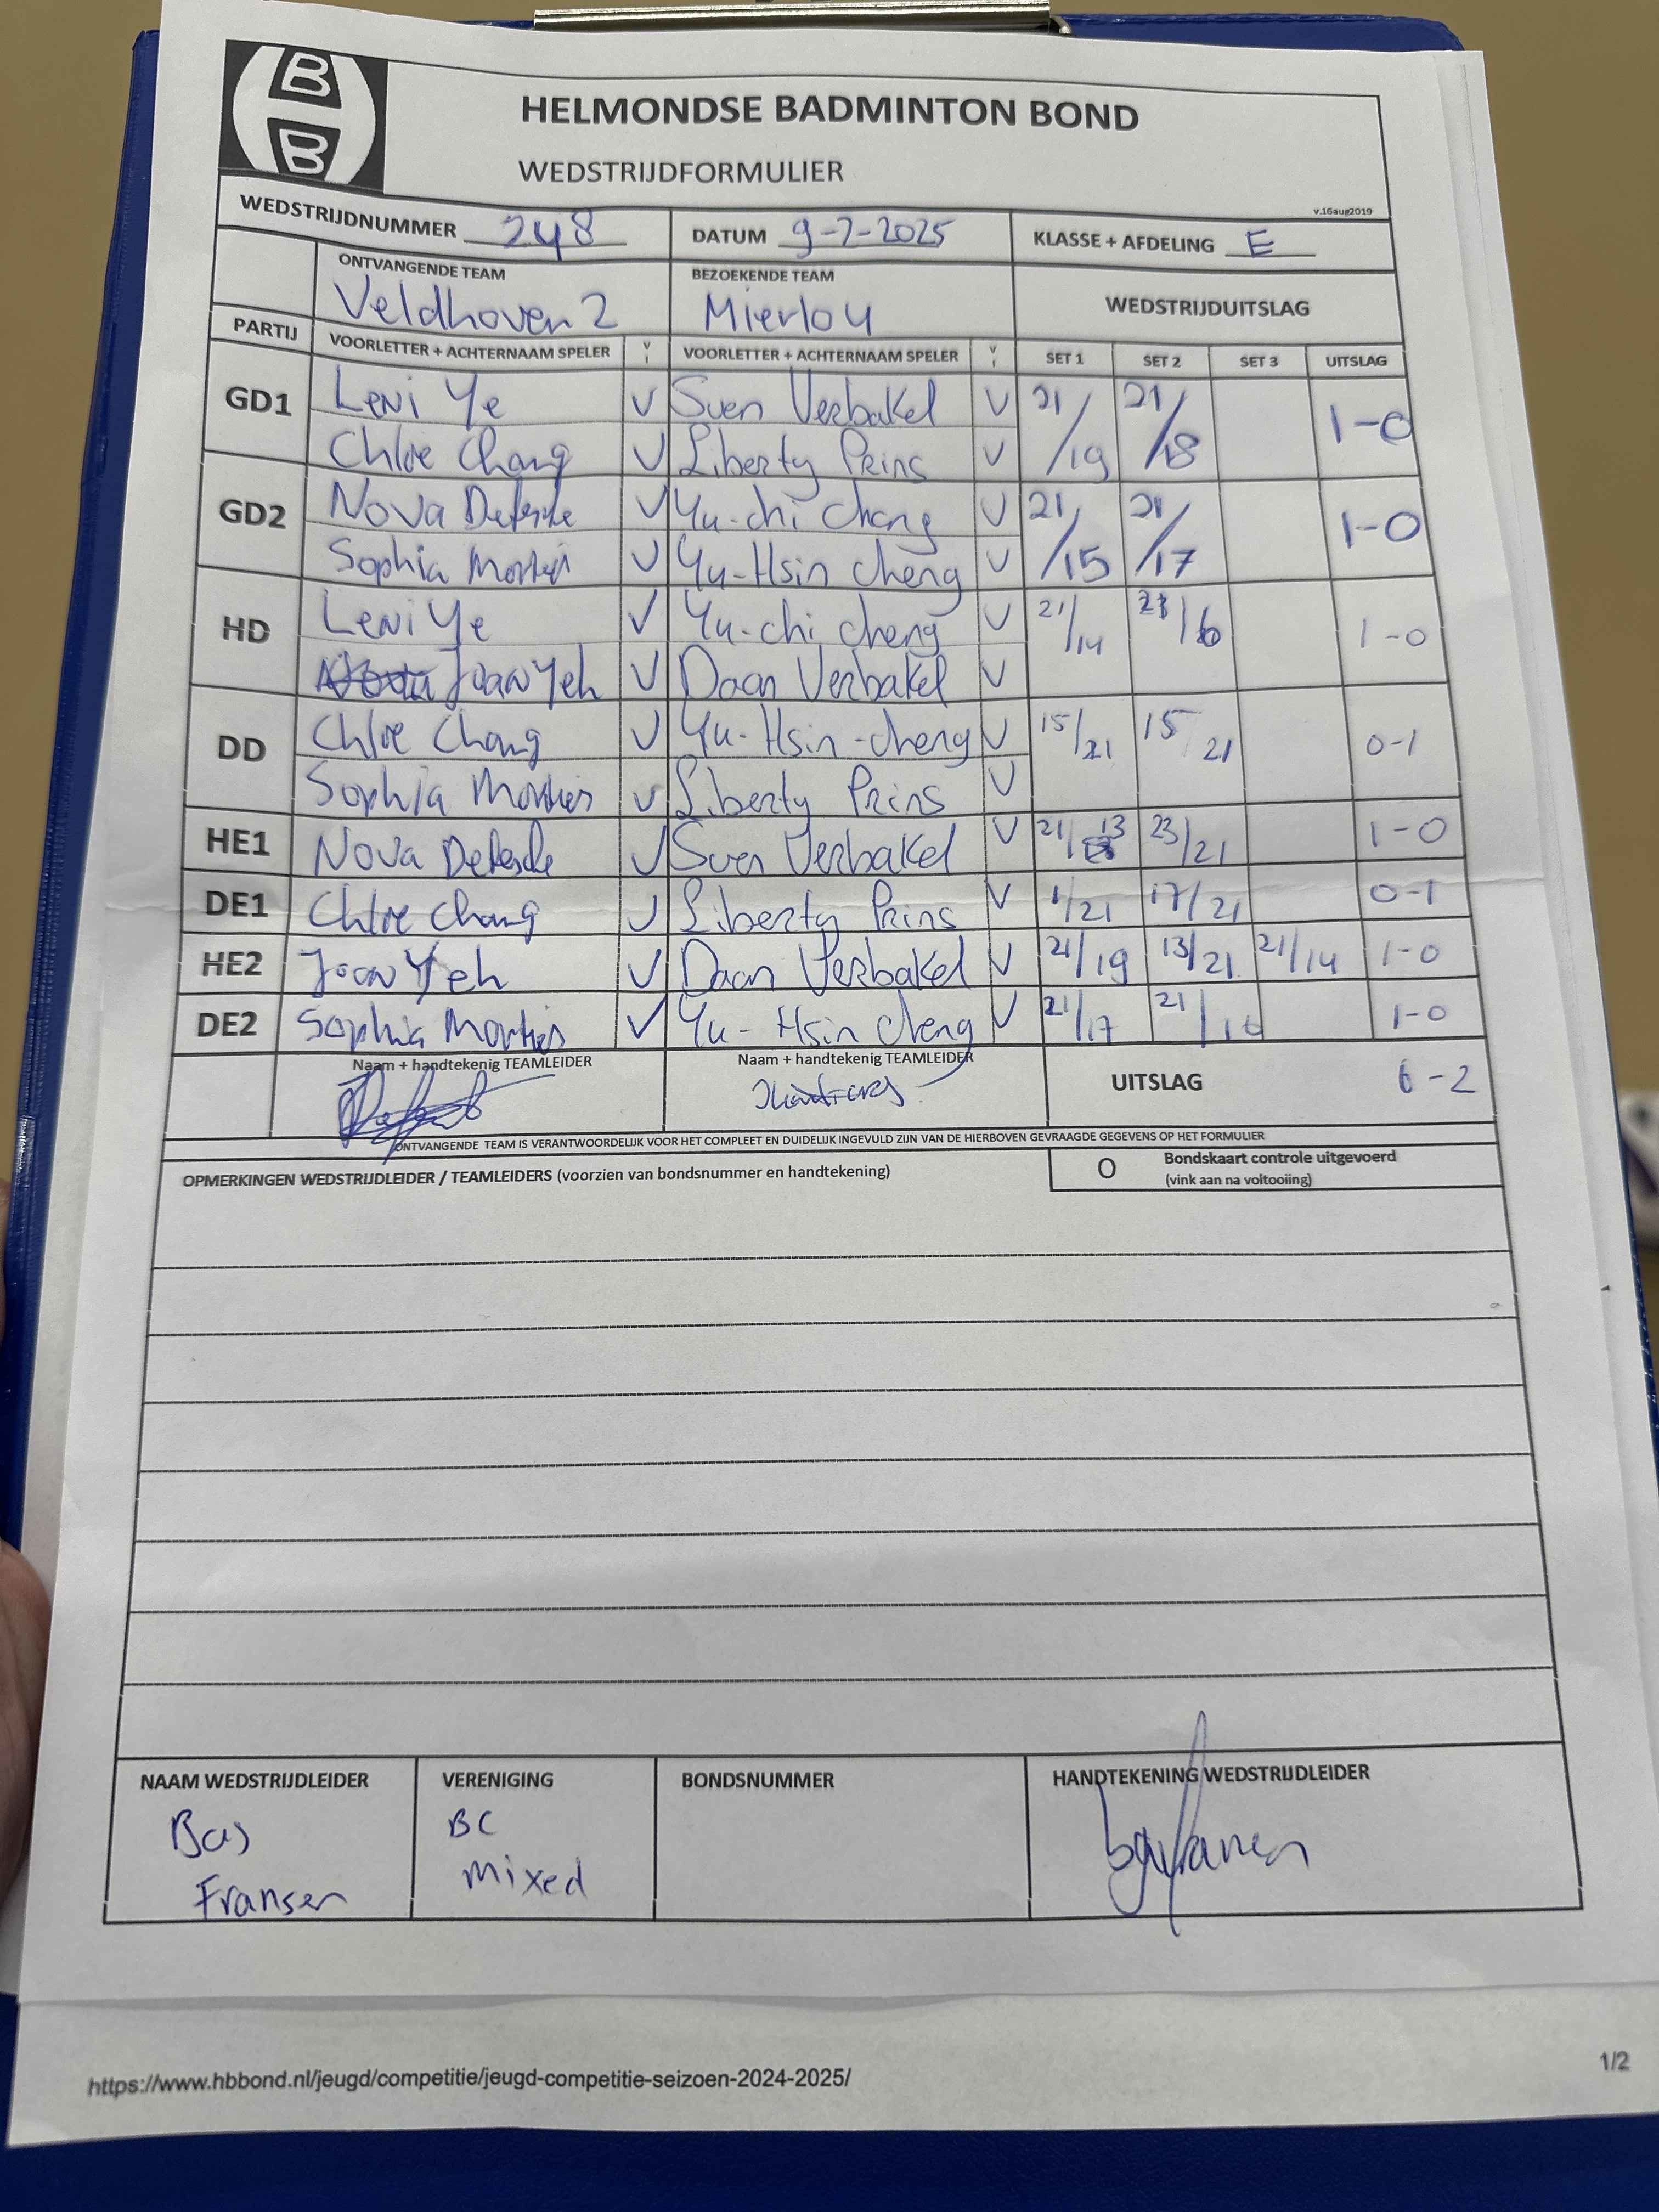 B
B
HELMONDSE BADMINTON BOND
WEDSTRIJDFORMULIER
v.16aug2019
WEDSTRIJDNUMMER 248 DATUM 9-2-2025 KLASSE + AFDELING E
ONTVANGENDE TEAM BEZOEKENDE TEAM WEDSTRIJDUITSLAG
Veldhoven 2 Mierlo 4
PARTIJ VOORLETTER + ACHTERNAAM SPELER V I VOORLETTER + ACHTERNAAM SPELER V I SET 1 SET 2 SET 3 UITSLAG
GD1 Leni Ye V Sven Verbakel V 21/19 21/18 1-0
Chloe Chang V Liberty Prins V
GD2 Nova V Yu-chi cheng V 21/15 21/17 1-0
Sophia V Yu-Hsin cheng V
HD Leni Ye V Yu-chi cheng V 21/14 /6 1-0
Joan Yeh V Daan Verbakel V
DD Chloe Chang V Yu-Hsin-cheng V 15/21 15 21 0-1
Sophia V Liberty Prins V
HE1 Nova V Sven Verbakel V 21/13 23/21 1-0
DE1 Chloe Chang V Liberty Prins V /21 17/21 0-1
HE2 Joan Yeh V Daan Verbakel V 21/19 13/21 21/14 1-0
DE2 Sophia V Yu-Hsin Cheng V 21/17 21/16 1-0
Naam + handtekenig TEAMLEIDER Naam + handtekenig TEAMLEIDER UITSLAG 6-2
ONTVANGENDE TEAM IS VERANTWOORDELIJK VOOR HET COMPLEET EN DUIDELIJK INGEVULD ZIJN VAN DE HIERBOVEN GEVRAAGDE GEGEVENS OP HET FORMULIER
OPMERKINGEN WEDSTRIJDLEIDER / TEAMLEIDERS (voorzien van bondsnummer en handtekening) O Bondskaart controle uitgevoerd
(vink aan na voltooiing)
NAAM WEDSTRIJDLEIDER VERENIGING BONDSNUMMER HANDTEKENING WEDSTRIJDLEIDER
Bas BC
Fransen mixed
https://www.hbbond.nl/jeugd/competitie/jeugd-competitie-seizoen-2024-2025/ 1/2